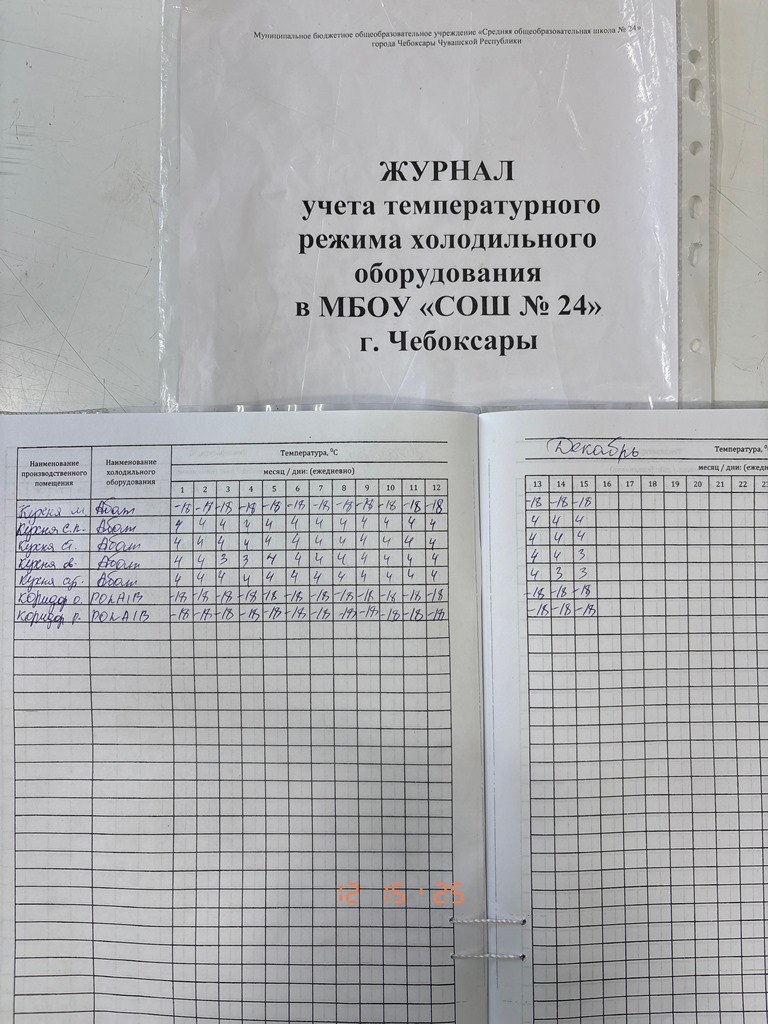 Муниципальное бюджетное общеобразовательное учреждение «Средняя общеобразовательная школа № 24»
города Чебоксары Чувашской Республики
ЖУРНАЛ
учета температурного
режима холодильного
оборудования
в МБОУ «СОШ № 24»
г. Чебоксары
Декабрь
Наименование производственного помещения Наименование холодильного оборудования Температура, ⁰С Температура, ⁰
месяц / дни: (ежедневно) месяц / дни: (ежедн
1 2 3 4 5 6 7 8 9 10 11 12 13 14 15 16 17 18 19 20 21 22 23
Кухня м. Абат -18 -18 -18 -18 -18 -18 -18 -18 -18 -18 -18 -18 -18 -18 -18
Кухня с.п. Абат 4 4 4 4 4 4 4 4 4 4 4 4 4 4 4
Кухня Абат 4 4 4 4 4 4 4 4 4 4 4 4 4 4 4
Кухня Абат 4 4 3 3 4 4 4 4 4 4 4 4 4 4 3
Кухня Абат 4 4 4 4 4 4 4 4 4 4 4 4 4 3 3
Коридор о. POLAIR -18 -18 -18 -18 -18 -18 -18 -18 -18 -18 -18 -18 -18 -18 -18
Коридор р. POLAIR -18 -18 -18 -18 -18 -18 -18 -18 -18 -18 -18 -18 -18 -18 -18
12 15 ' 25